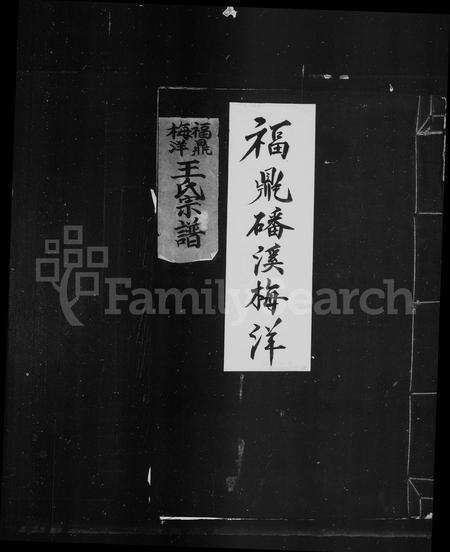 福鼎磻溪梅洋
福鼎
梅洋
王氏宗譜
FamilySearch